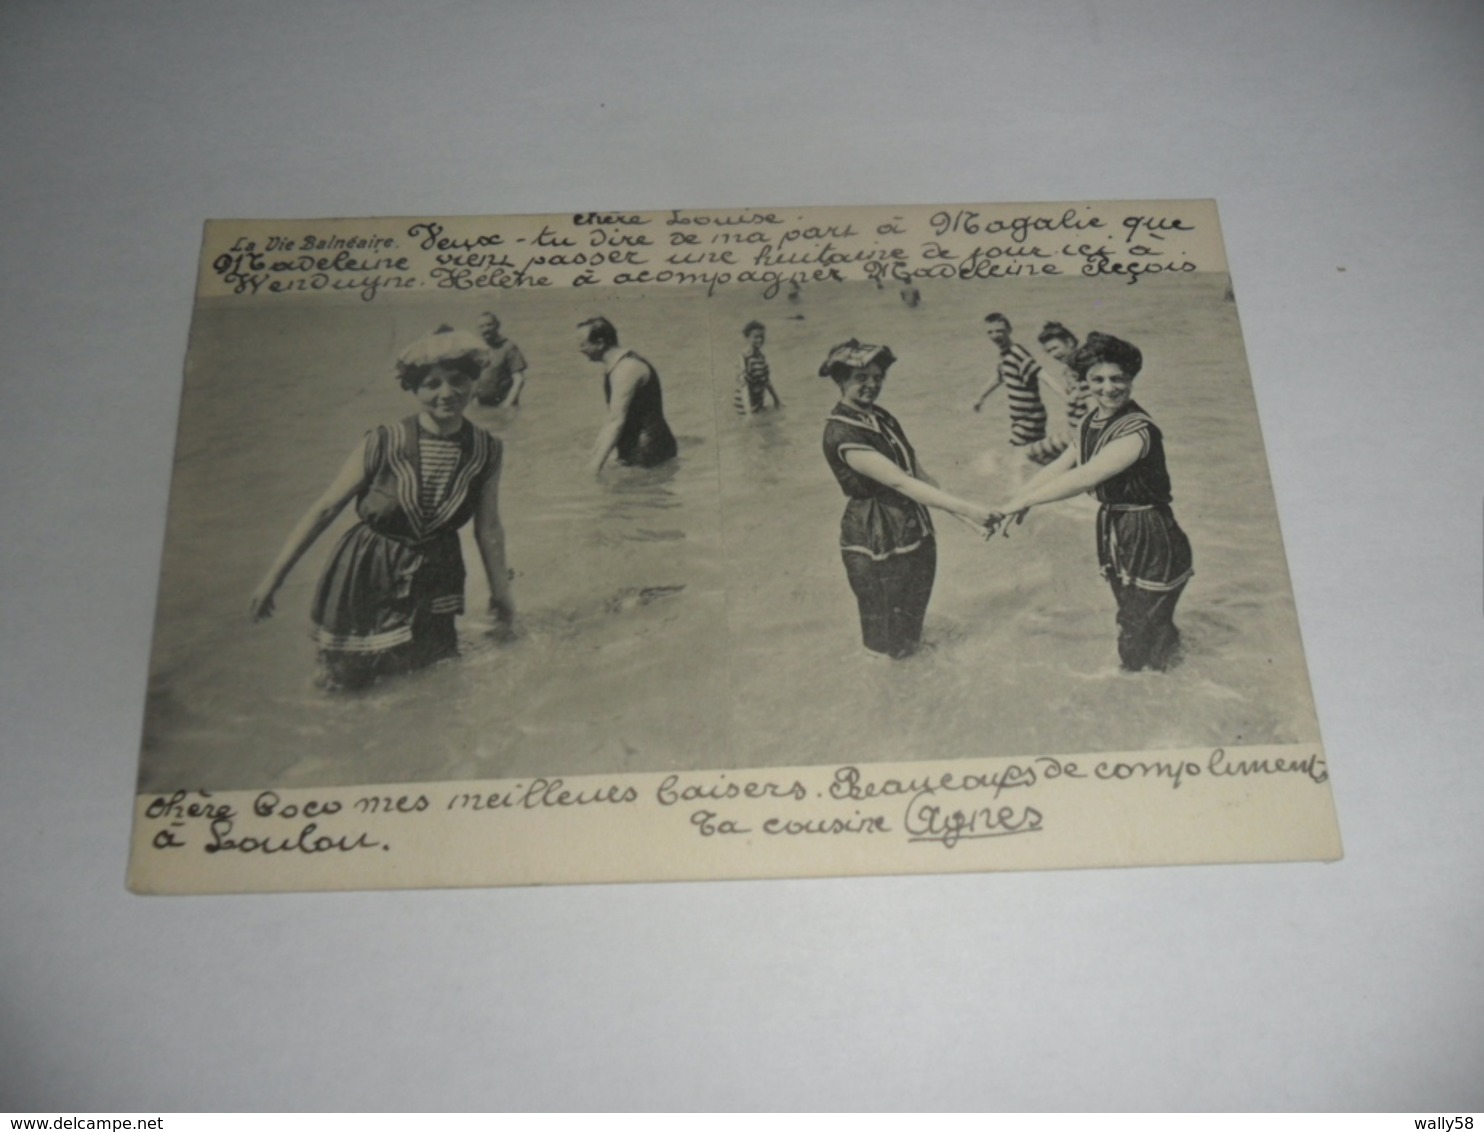 chère Louise.
La Vie Balnéaire. Veux-tu dire de ma part à Magalie que
Madeleine vient passer une huitaine de jour ici à
Wenduyne. Hélène à acompagner Madeleine Reçois
chère Coco mes meilleures baisers. Beaucoups de compliments
à Loulou. Ta cousine Agnes
delcampe.net
wally58